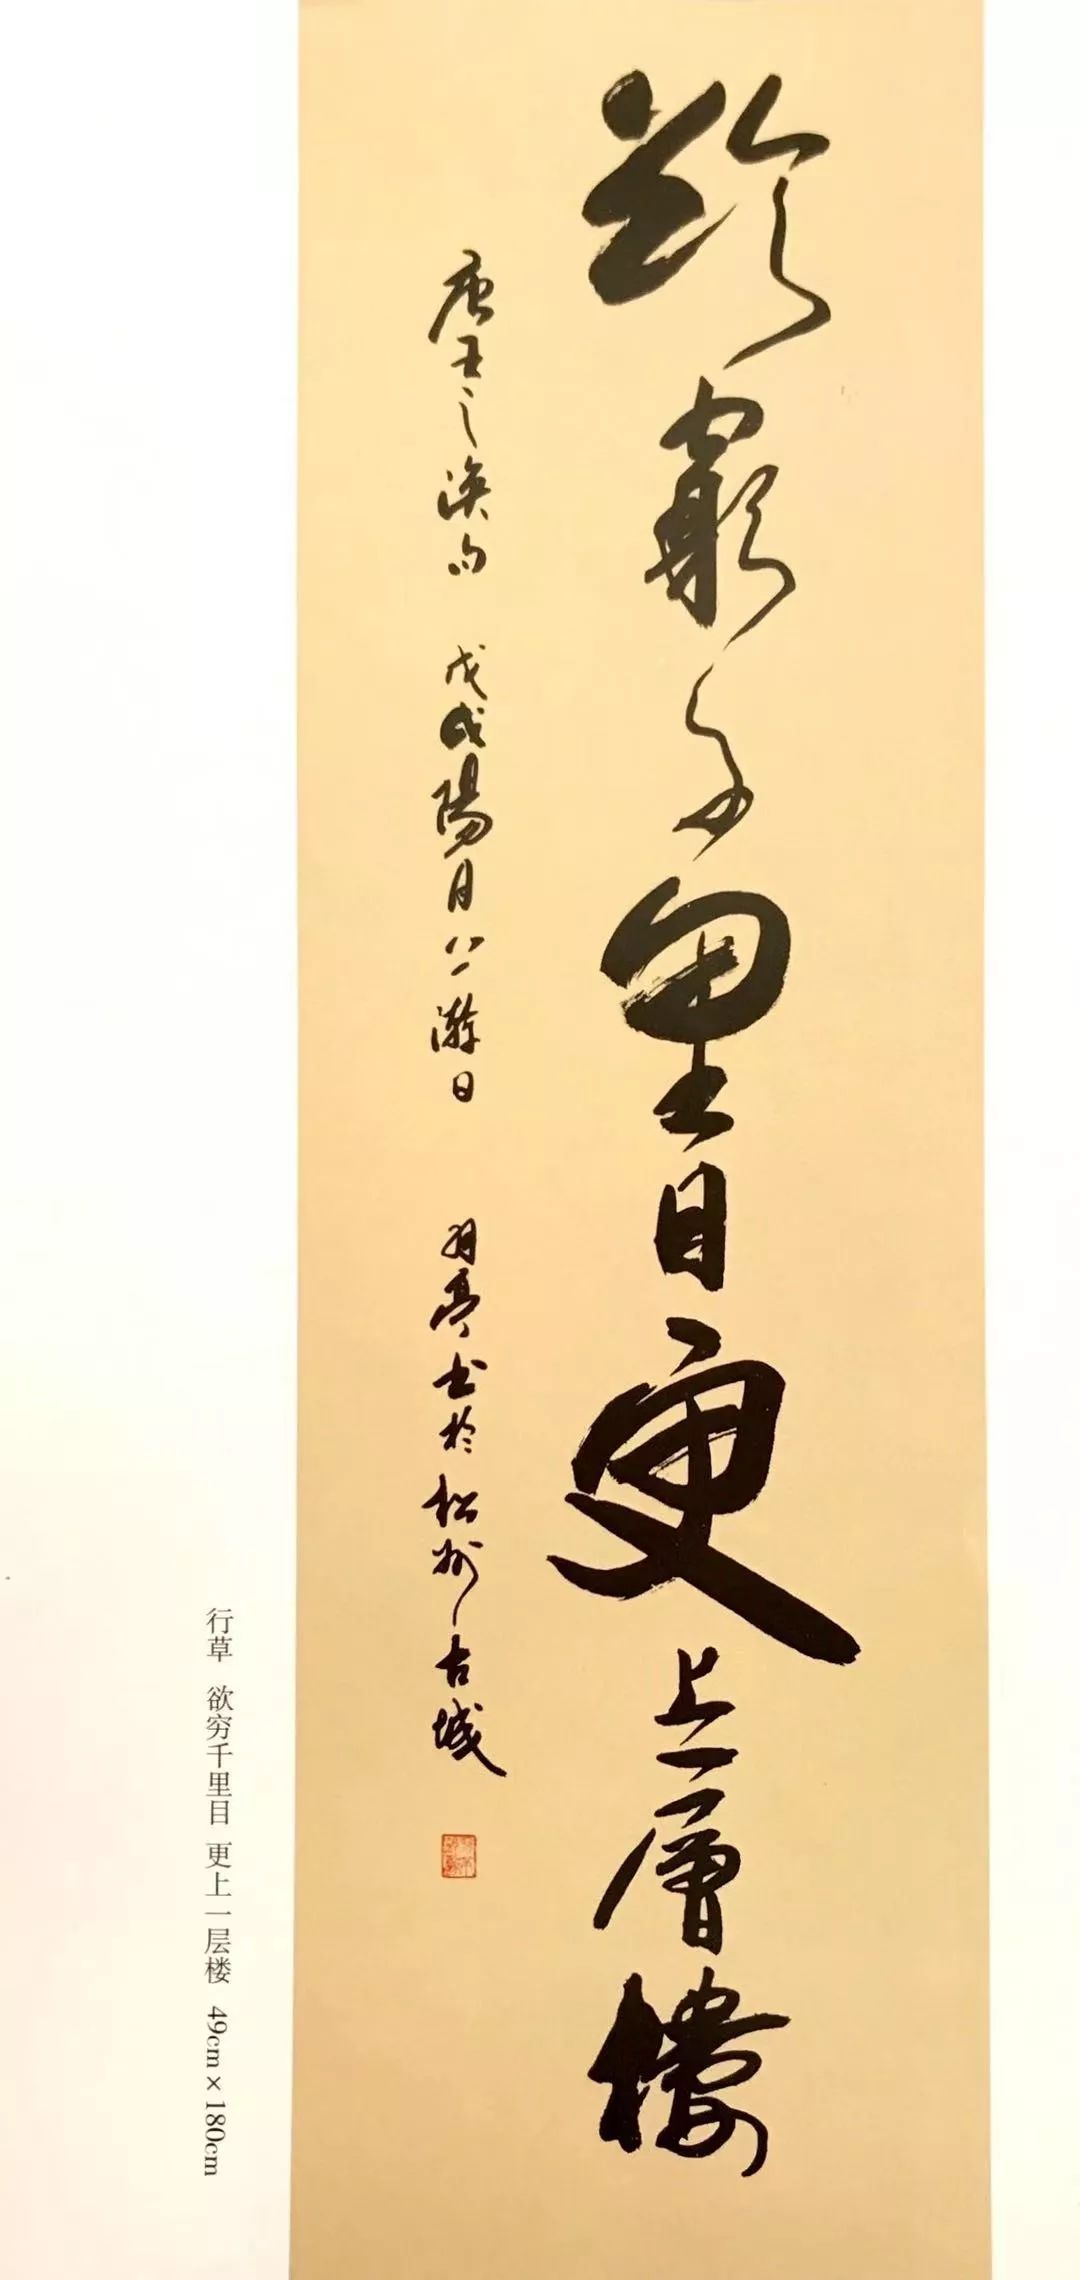 欲窮千里目更上一層樓
唐王之渙句 戊戌陽月上澣日 亭書於松州古城
行草 欲穷千里目 更上一层楼 49cm×180cm